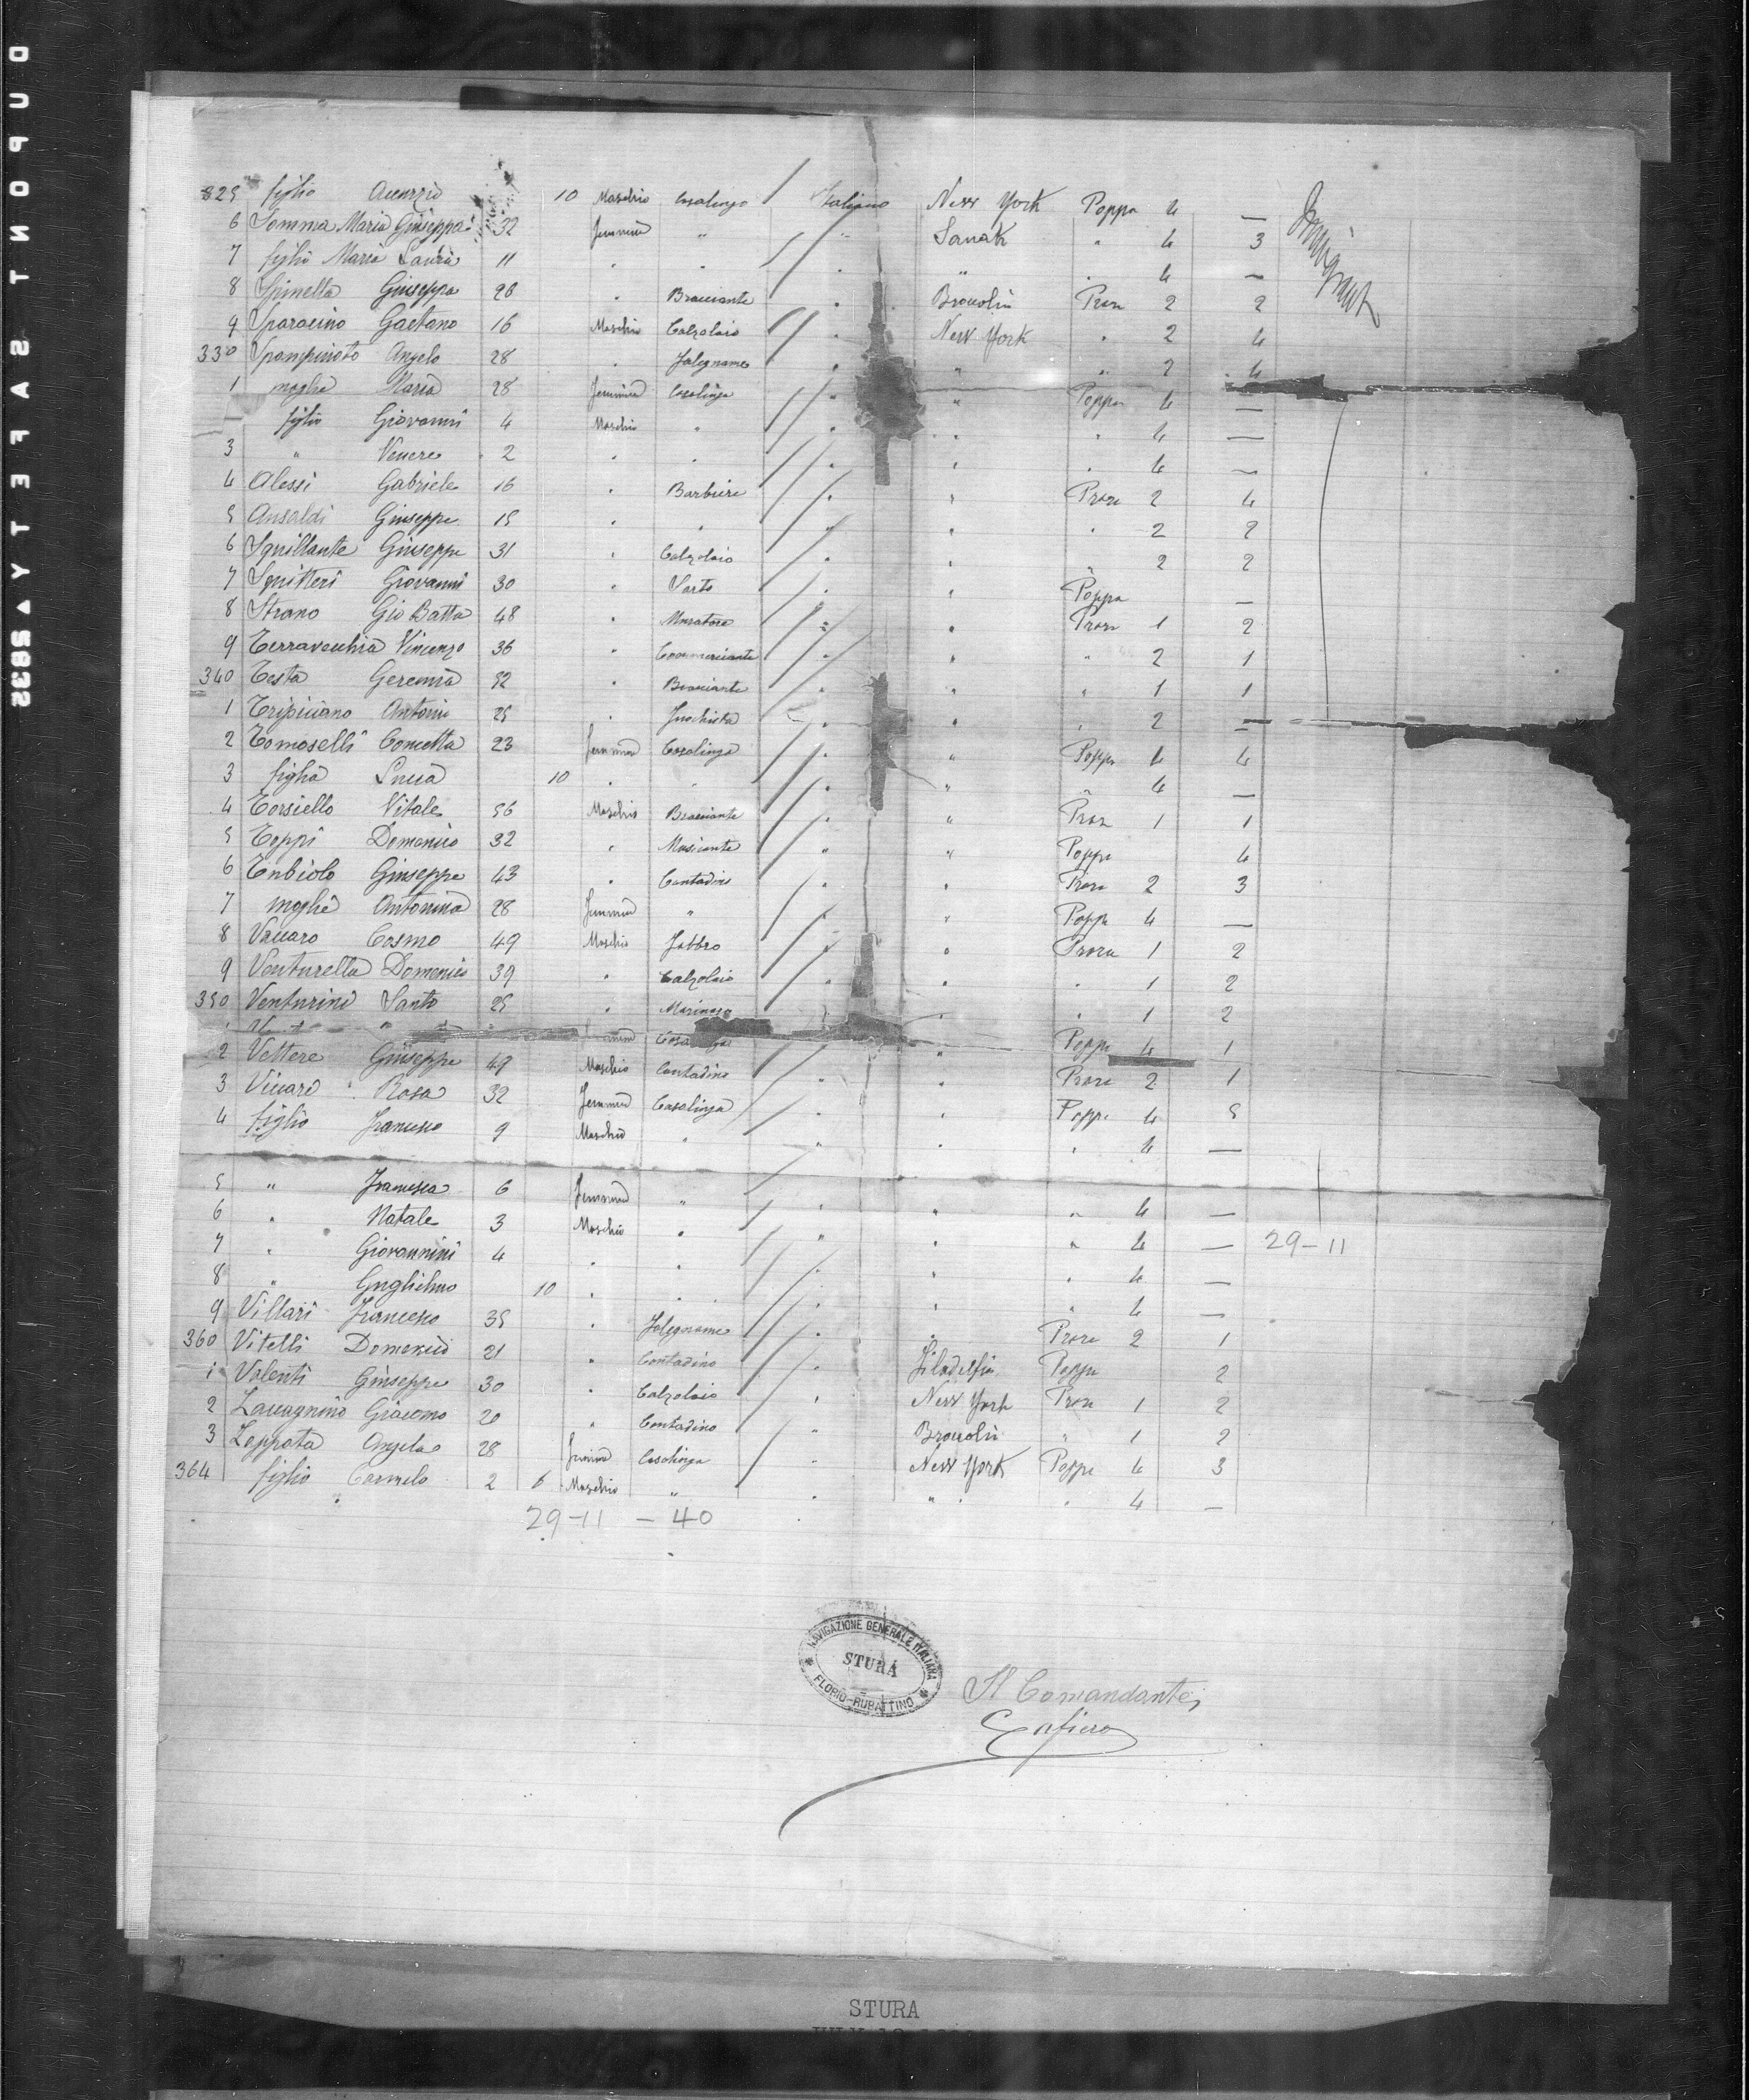 325 figlio 10 Maschio Casalingo Italiano New York Poppa 4 —
6 Somma Maria Giuseppa 32 Femmina " " 4 3 Immigrant
7 figlia Maria Laura 11 " " " " " 4 —
8 Spinella Giuseppa 26 " Bracciante " Broccolin Prora 2 2
9 Sparacino Gaetano 16 Maschio Calzolaio " New York " 2 4
330 Spampinato Angelo 28 " Falegname " " " 2 4
1 moglie Maria 28 Femmina Casalinga " " Poppa 4 —
figlio Giovanni 4 Maschio " " " " 4 —
3 " Venere 2 " " " " " 4 —
4 Alessi Gabriele 16 " Barbiere " " Prora 2 4
5 Ansaldi Giuseppe 15 " " " " " 2 2
6 Squillante Giuseppe 31 " Calzolaio " " " 2 2
7 Squitteri Giovanni 30 " Sarto " " Poppa —
8 Strano Gio Batta 48 " Muratore " " Prora 1 2
9 Terravecchia Vincenzo 36 " Commerciante " " " 2 1
340 Testa Geremia 32 " Bracciante " " " 1 1
1 Tripiciano Antonio 25 " Fuochista " " " 2 —
2 Tomaselli Concetta 23 Femmina Casalinga " " Poppa 4 4
3 figlia Lucia 10 " " " " " 4 —
4 Torsiello Vitale 56 Maschio Bracciante " " Prora 1 1
5 Toppi Domenico 32 " Musicante " " Poppa 4
6 Tubiolo Giuseppe 43 " Contadino " " Prora 2 3
7 moglie Antonina 28 Femmina " " " Poppa 4 —
8 Vaccaro Cosmo 49 Maschio Fabbro " " Prora 1 2
9 Venturella Domenico 39 " Calzolaio " " " 1 2
350 Venturini Santo 25 " Marinaio " " " 1 2
Poppa 4 1
2 Vettere Giuseppe 49 Maschio Contadino " " Prora 2 1
3 Viccaro Rosa 32 Femmina Casalinga " " Poppa 4 5
4 figlio Francesco 9 Maschio " " " " 4 —
5 " Francesca 6 Femmina " " " " 4 —
6 " Natale 3 Maschio " " " " 4 — 29-11
7 " Giovannini 4 " " " " " 4 —
8 " Guglielmo 10 " " " " " 4 —
9 Villari Francesco 35 " Falegname " " Prora 2 1
360 Vitelli Domenico 21 " Contadino " Filadelfia Poppa 2
1 Valenti Giuseppe 30 " Calzolaio " New York Prora 1 2
2 Zaccagnino Giacomo 20 " Contadino " Broccolin " 1 2
3 Zappata Angela 28 Femmina Casalinga " New York Poppa 4 3
364 figlio Carmelo 2 6 Maschio " " " " 4 —
29-11 - 40
NAVIGAZIONE GENERALE ITALIANA
STURA
FLORIO-RUBATTINO
Il Comandante
Cafiero
STURA
DUPONT SAFETY